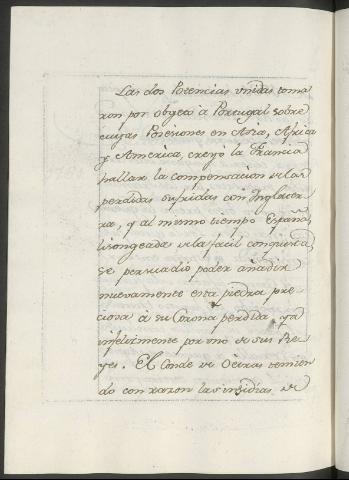 Las dos Potencias unidas toma
ron por objeto à Portugal sobre
cuyas Posesiones en Asia, Africa
y America, creyó la Francia
hallar la compensacion de las
perdidas sufridas con Inglater
ra, y al mismo tiempo España,
lisongeada de la facil conquista
se persuadió poder añadir
nuevamente esta piedra pre
ciosa à su Corona perdida, ya
infelizmente por uno de sus Re
yes. El Conde de Oeiras temien
do con razon las insidias de